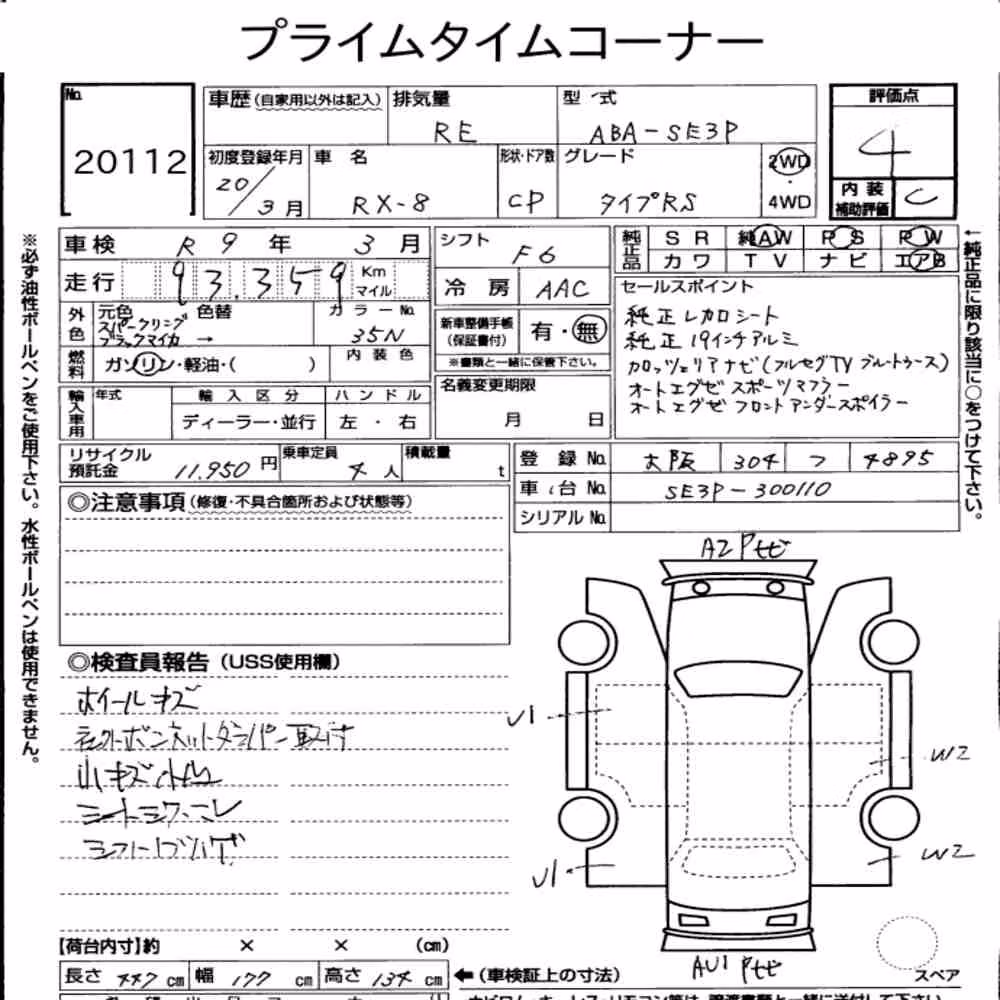 プライムタイムコーナー
No.
20112
車歴(自家用以外は記入)
排気量
RE
型 式
ABA-SE3P
評価点
4
初度登録年月
20/3月
車 名
RX-8
形状・ドア数
CP
グレード
タイプRS
2WD
・
4WD
内 装
補助評価
C
車検 R 9 年 3 月
シフト F6
純正品
SR 純AW PS PW
カワ TV ナビ エアB
走行 93,359 Km マイル
冷房 AAC
セールスポイント
純正レカロシート
純正19インチアルミ
カロッツェリアナビ(フルセグTV ブルートゥース)
オートエグゼ スポーツマフラー
オートエグゼ フロントアンダースポイラー
外色
元色 色替
スパークリング
ブラックマイカ →
カラーNo.
35N
新車整備手帳
(保証書付)
有・無
※書類と一緒に保管下さい。
燃料
ガソリン・軽油・( )
内装色
名義変更期限
月 日
輸入車用
年式
輸入区分
ハンドル
ディーラー・並行
左・右
リサイクル
預託金 11,950 円
乗車定員
4人
積載量
t
登録No. 大阪 304 フ 4895
車台No. SE3P-300110
シリアルNo.
◎注意事項(修復・不具合箇所および状態等)
◎検査員報告(USS使用欄)
ホイールキズ
小キズ小凹
A2 Pセビ
U1
W2
U1
W2
AU1 Pセビ
スペア
【荷台内寸】約 × × (cm)
長さ 447 cm 幅 177 cm 高さ 134 cm
←(車検証上の寸法)
※必ず油性ボールペンをご使用下さい。水性ボールペンは使用できません。
←純正品に限り該当に○をつけて下さい。